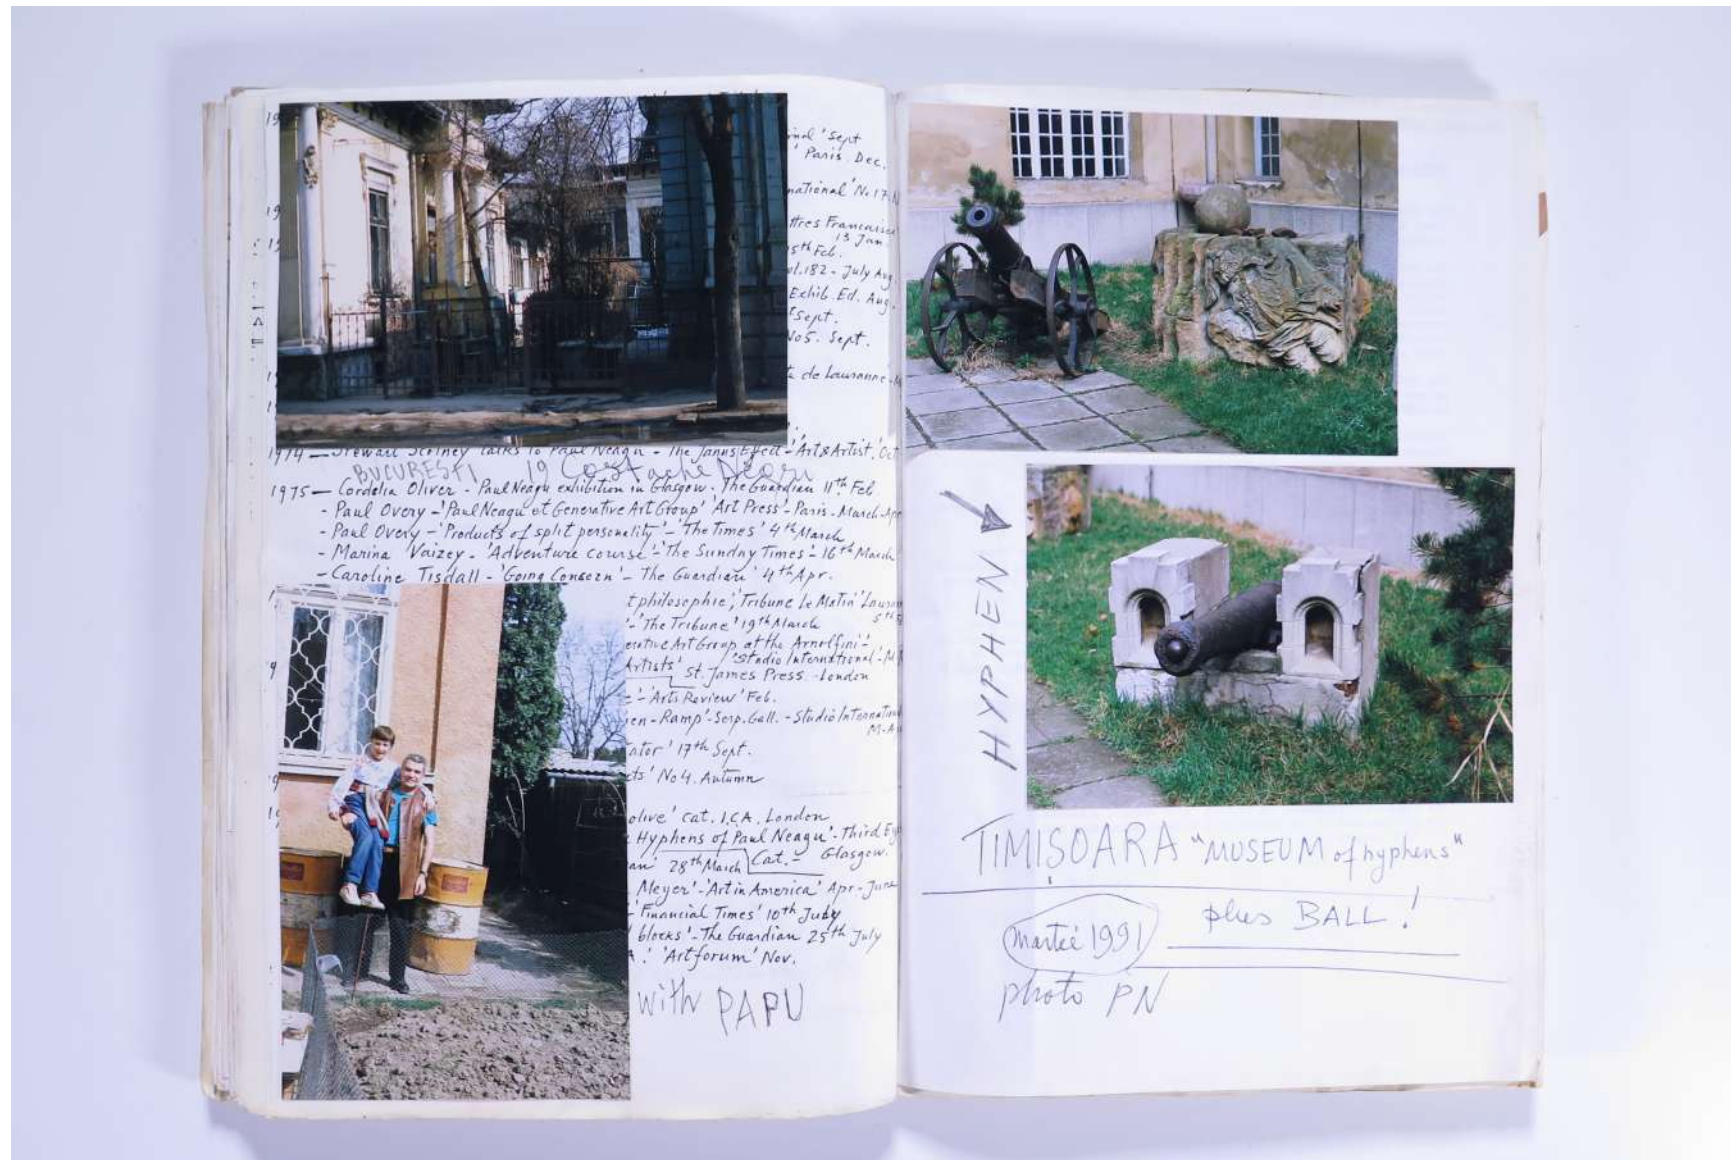 inal' Sept
Paris. Dec.
national' No 17
ttres Francaises
13 Jan
5th Feb.
ol.182 - July Aug
Exhib. Ed. Aug.
Sept.
No5. Sept.
de Lausanne -
1974 — Talks to Paul Neagu - The Janus Effect - 'Art & Artist', Oct
BUCUREȘTI 19 Costache Negri
1975 — Cordelia Oliver - Paul Neagu exhibition in Glasgow - The Guardian 11th Feb
- Paul Overy - 'Paul Neagu et Generative Art Group' Art Press - Paris - March-Apr
- Paul Overy - 'Products of split personality' - 'The Times' 4th March
- Marina Vaizey - 'Adventure course' - 'The Sunday Times' - 16th March
- Caroline Tisdall - 'Going Concern' - The Guardian' 4th Apr.
t philosophie', 'Tribune le Matin' Lausan
5th
- 'The Tribune' 19th March
erative Art Group at the Arnolfini -
'Studio International' -
Artists' St. James Press - London
- 'Arts Review' Feb.
en - Ramp' - Serp. Gall. - Studio Internation
ator' 17th Sept.
cts' No 4. Autumn
olive' cat. I.C.A. London
Hyphens of Paul Neagu' - Third Eye
an' 28th March Cat. - Glasgow.
Meyer' - 'Art in America' Apr - June
- 'Financial Times' 10th July
blocks' - The Guardian 25th July
'Artforum' Nov.
with PAPU
HYPHEN
TIMIȘOARA "MUSEUM of hyphens"
plus BALL!
martie 1991
photo PN